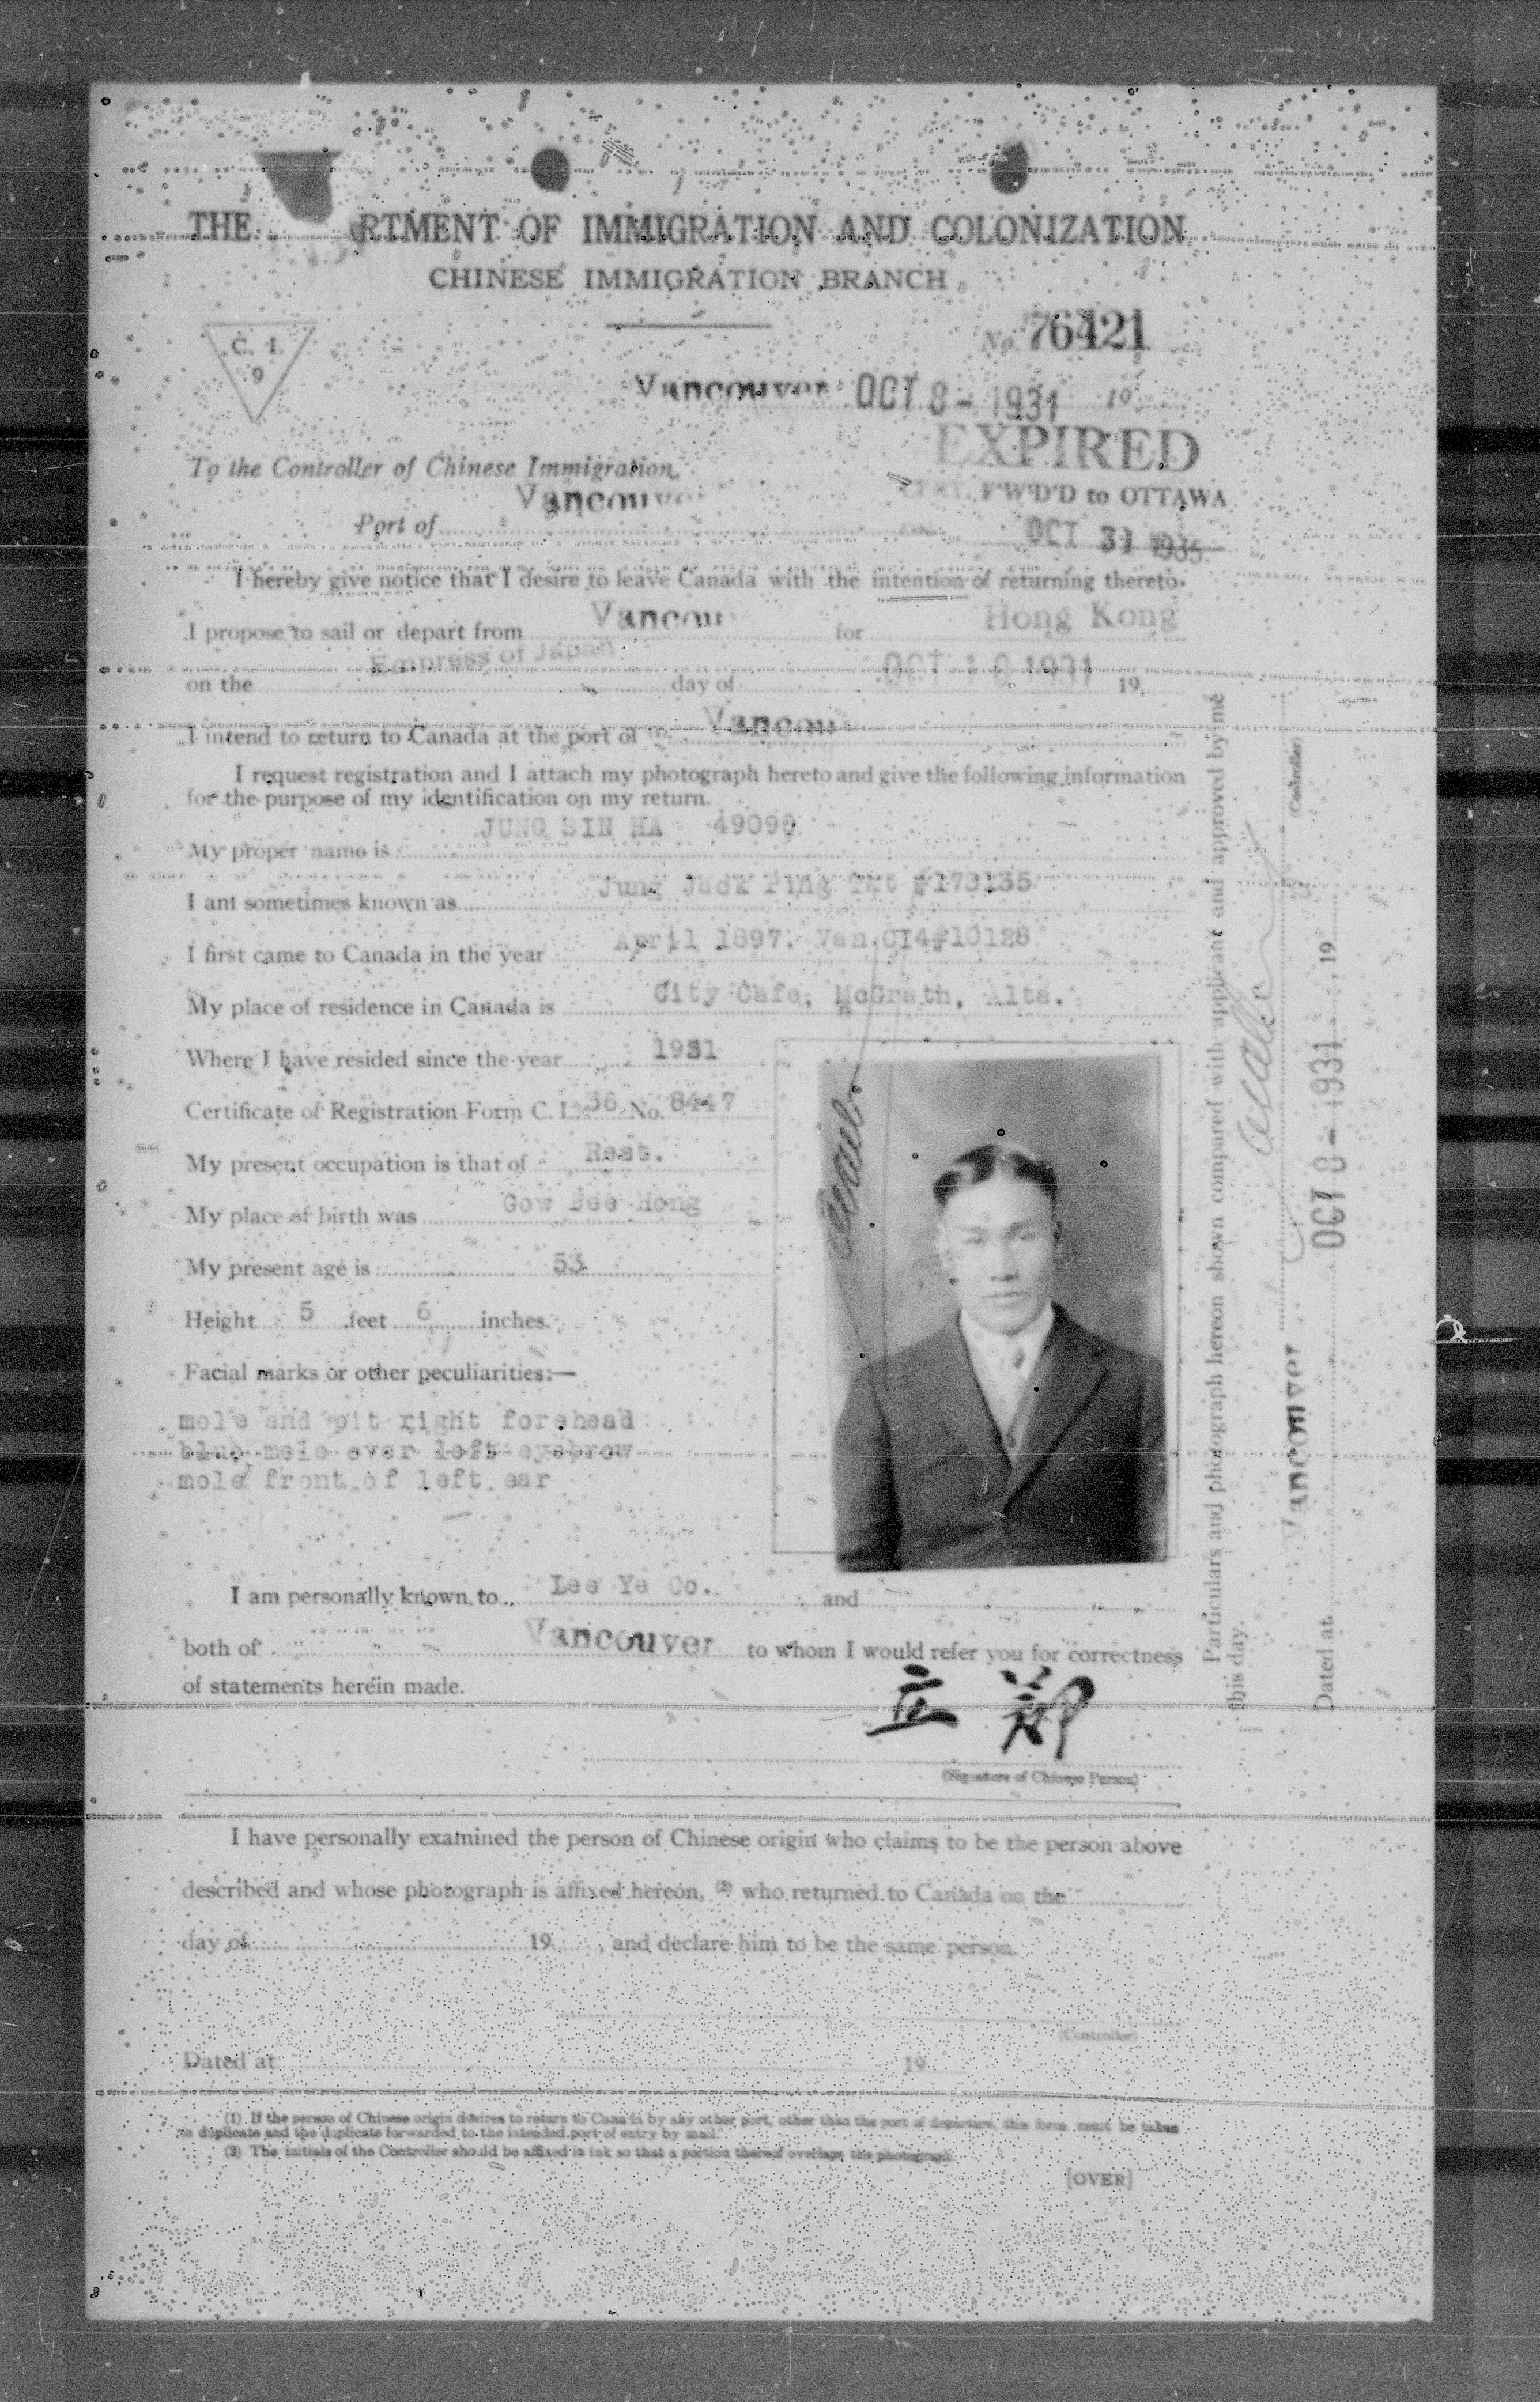 THE RTMENT OF IMMIGRATION AND COLONIZATION
CHINESE IMMIGRATION BRANCH
C. I.
9
No. 76421
Vancouver OCT 8 - 1931 19
EXPIRED
To the Controller of Chinese Immigration,
F'W'D'D to OTTAWA
Vancouver
Port of
OCT 31 1935
I hereby give notice that I desire to leave Canada with the intention of returning thereto.
I propose to sail or depart from Vancou for Hong Kong
Empress of Japan
on the day of OCT 10 1931 19
I intend to return to Canada at the port of (1) Vancou
I request registration and I attach my photograph hereto and give the following information
for the purpose of my identification on my return.
My proper name is JUNG SIN MA 49090
I am sometimes known as Jung Jack Ping Tkt #173135
I first came to Canada in the year April 1897. Van.CI4#10128
My place of residence in Canada is City Cafe, McGrath, Alta.
Where I have resided since the year 1931
Certificate of Registration Form C. I. 36 No. 8447
My present occupation is that of Rest.
My place of birth was Gow Bee Hong
My present age is 53
Height 5 feet 6 inches.
Facial marks or other peculiarities:—
mole and pit right forehead
blue mole over left eyebrow
mole front of left ear
I am personally known to Lee Ye Co. and
both of Vancouver to whom I would refer you for correctness
of statements herein made.
立 鄭
(Signature of Chinese Person)
I have personally examined the person of Chinese origin who claims to be the person above
described and whose photograph is affixed hereon, (2) who returned to Canada on the
day of 19 , and declare him to be the same person.
(Controller)
Dated at 19
(1) If the person of Chinese origin desires to return to Canada by any other port, other than the port of departure, this form must be taken
in duplicate and the duplicate forwarded to the intended port of entry by mail.
(2) The initials of the Controller should be affixed in ink so that a portion thereof overlaps the photograph.
[OVER]
Particulars and photograph hereon shown compared with applicant and approved by me
this day.
(Controller)
Dated at Vancouver OCT 8 - 1931 19